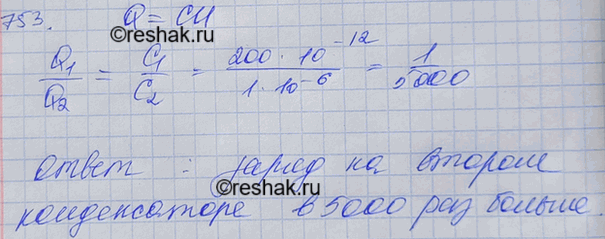 753. Q = CU
©reshak.ru
Q1/Q2 = C1/C2 = 200·10^-12/1·10^-6 = 1/5000
Ответ : заряд на втором
©reshak.ru
конденсаторе в 5000 раз больше.